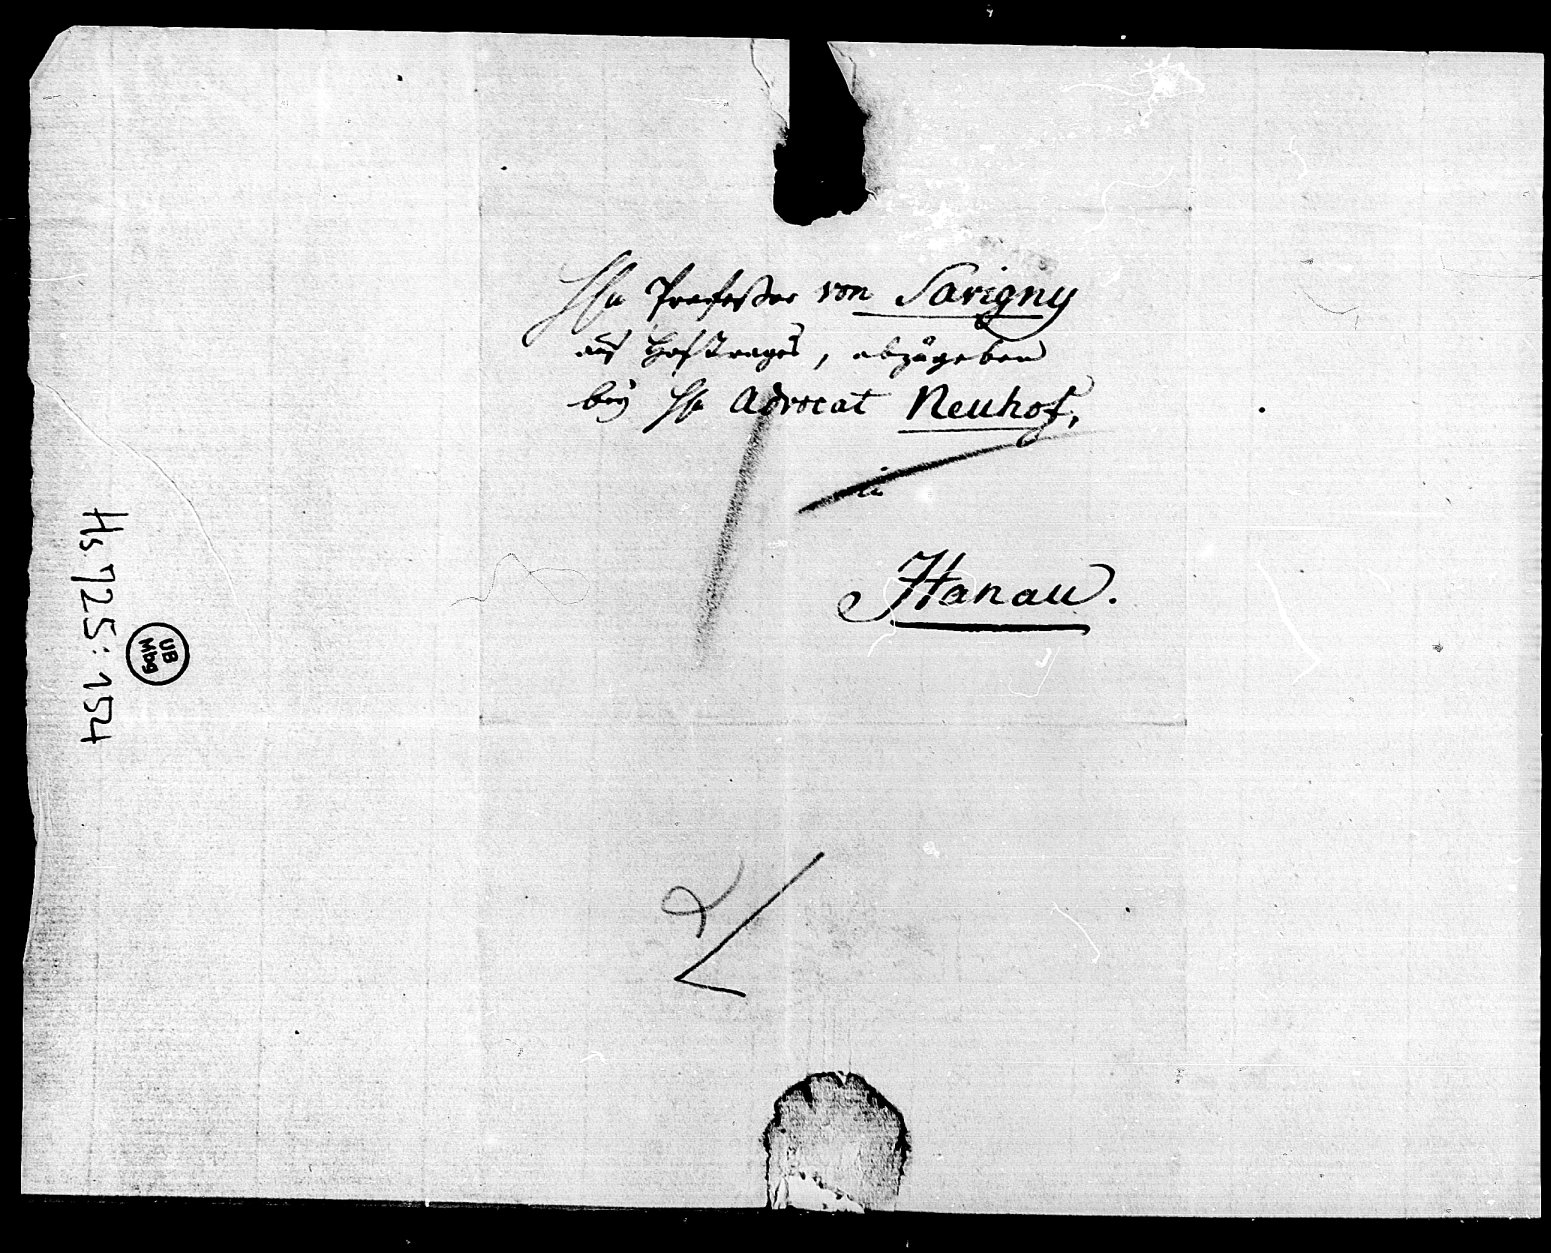 Hrn Professor von Savigny
auf Hoftrages, abzugeben
bey Hr Advocat Neuhof,
in
Hanau.
Hs 725:154
UB
Mbg